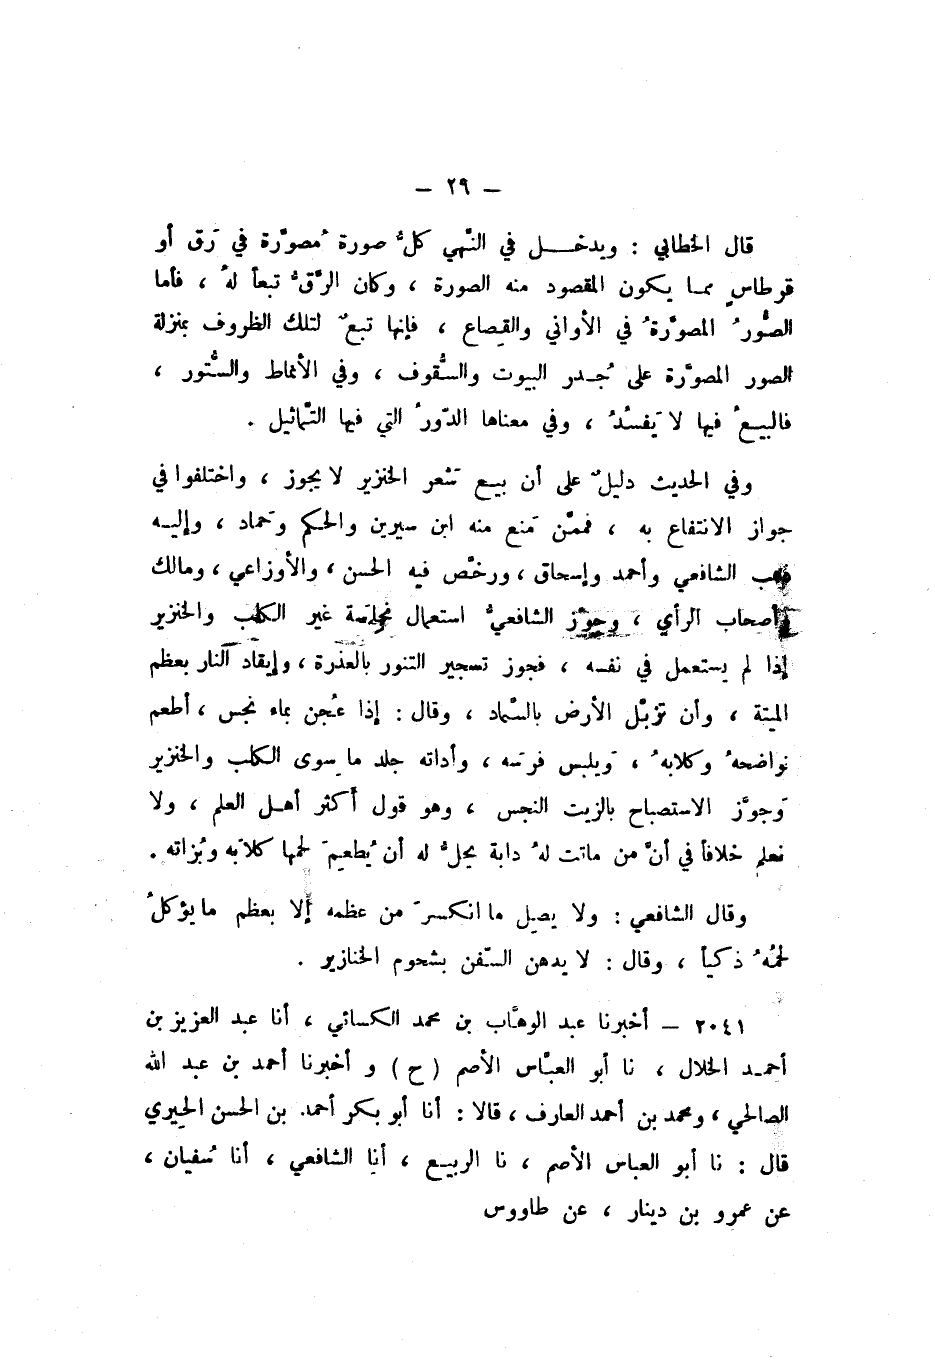 — ٢٩ —
قال الخطابي : ويدخــل في النّهي كلُّ صورة مُصوَّرة في رَق أو
قرطاسٍ ممــا يكون المقصود منه الصورة ، وكان الرَّقُّ تبعاً لهُ ، فأما
الصُّورُ المصوَّرةُ في الأواني والقصاع ، فإنها تبعٌ لتلك الظروف بمنزلة
الصور المصوَّرة على جُــدر البيوت والسُّقوف ، وفي الأنماط والسُّتور ،
فالبيــعُ فيها لا يَفسُدُ ، وفي معناها الدّورُ التي فيها التّماثيل .
وفي الحديث دليلٌ على أن بيــع شَعر الخنزير لا يجوز ، واختلفوا في
جواز الانتفاع به ، فممَّن مَنع منه ابن سيرين والحكم وحَماد ، وإليــه
ذهب الشافعي وأحمد وإسحاق ، ورخَّص فيه الحسن ، والأوزاعي ، ومالك
وأصحاب الرأي ، وجوَّز الشافعيُّ استعمال نجاسَة غير الكلب والخنزير
إذا لم يستعمل في نفسه ، فجوز تسجير التنور بالعذرة ، وإيقاد النار بعظم
الميتة ، وأن تزبّل الأرض بالسّماد ، وقال : إذا عُجن بماء نجس ، أطعم
نواضحهُ وكلابهُ ، ويَلبس فرسَه ، وأداته جلد ما سوى الكلب والخنزير
وجَوَّز الاستصباح بالزيت النجس ، وهو قول أكثر أهــل العلم ، ولا
نعلم خلافاً في أنَّ من ماتت لهُ دابة يحلُّ له أن يُطعِمَ لحمها كلابَه وبُزاته .
وقال الشافعي : ولا يصل ما انكسرَ من عظمه إلا بعظم ما يؤكلُ
لحمُهُ ذكياً ، وقال : لا يدهن السّفن بشحوم الخنازير .
٢٠٤١ — أخبرنا عبد الوهَّاب بن محمد الكسائي ، أنا عبد العزيز بن
أحمــد الخلال ، نا أبو العبَّاس الأصم ( ح ) و أخبرنا أحمد بن عبد الله
الصالحي ، ومحمد بن أحمد العارف ، قالا : أنا أبو بكر أحمد بن الحسن الحيري
قال : نا أبو العباس الأصم ، نا الربيــع ، أنا الشافعي ، أنا سُفيان ،
عن عمرو بن دينار ، عن طاووس